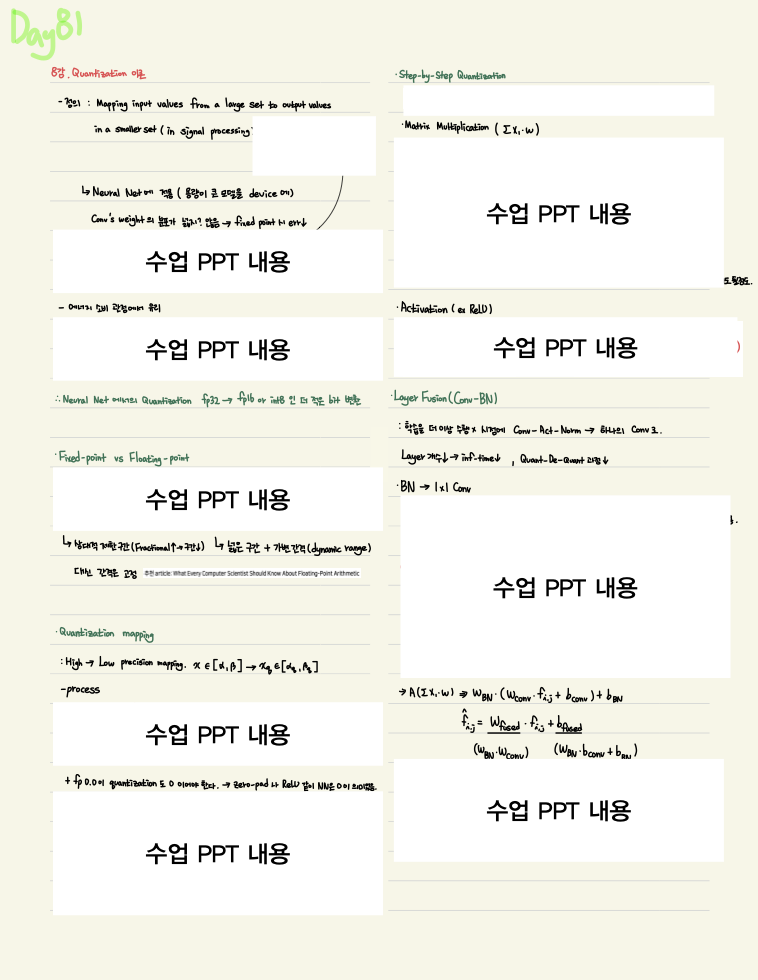 Day81
8강. Quantization 이론
- 정의 : Mapping input values from a large set to output values
in a smaller set ( in signal processing
↳ Neural Net에 적용 ( 용량이 큰 모델을 device에)
Conv's weight의 분포가 넓지? 않음 → fixed point 시 err↓
수업 PPT 내용
- 에너지 소비 관점에서 유리
수업 PPT 내용
∴ Neural Net 에서의 Quantization fp32 → fp16 or int8 인 더 적은 bit 변환
· Fixed-point vs Floating-point
수업 PPT 내용
↳ 상대적 제한 구간 (Fractional↑→구간↓) ↳ 넓은 구간 + 가변간격 (dynamic range)
대신 간격은 고정 추천 article: What Every Computer Scientist Should Know About Floating-Point Arithmetic
· Quantization mapping
: High → Low precision mapping. x ∈ [α, β] → x_q ∈ [α_q, β_q]
-process
수업 PPT 내용
+ fp 0.0이 quantization도 0 이어야 한다. → zero-pad 나 ReLU 같이 NN은 0이 의미있음.
수업 PPT 내용
· Step-by-Step Quantization
· Matrix Multiplication ( Σ x_i · w )
수업 PPT 내용
· Activation ( ex ReLU )
수업 PPT 내용
)
· Layer Fusion (Conv-BN)
: 학습을 더 이상 수행 x 시점에 Conv-Act-Norm → 하나의 Conv로.
Layer 개수↓ → inf-time↓ , Quant-De-Quant 과정↓
· BN → 1x1 Conv
수업 PPT 내용
→ A(Σ x_i · w) ⇒ W_BN · (W_conv · f_i,j + b_conv) + b_BN
f̂_i,j = W_fused · f_i,j + b_fused
(W_BN · W_conv) (W_BN · b_conv + b_BN)
수업 PPT 내용